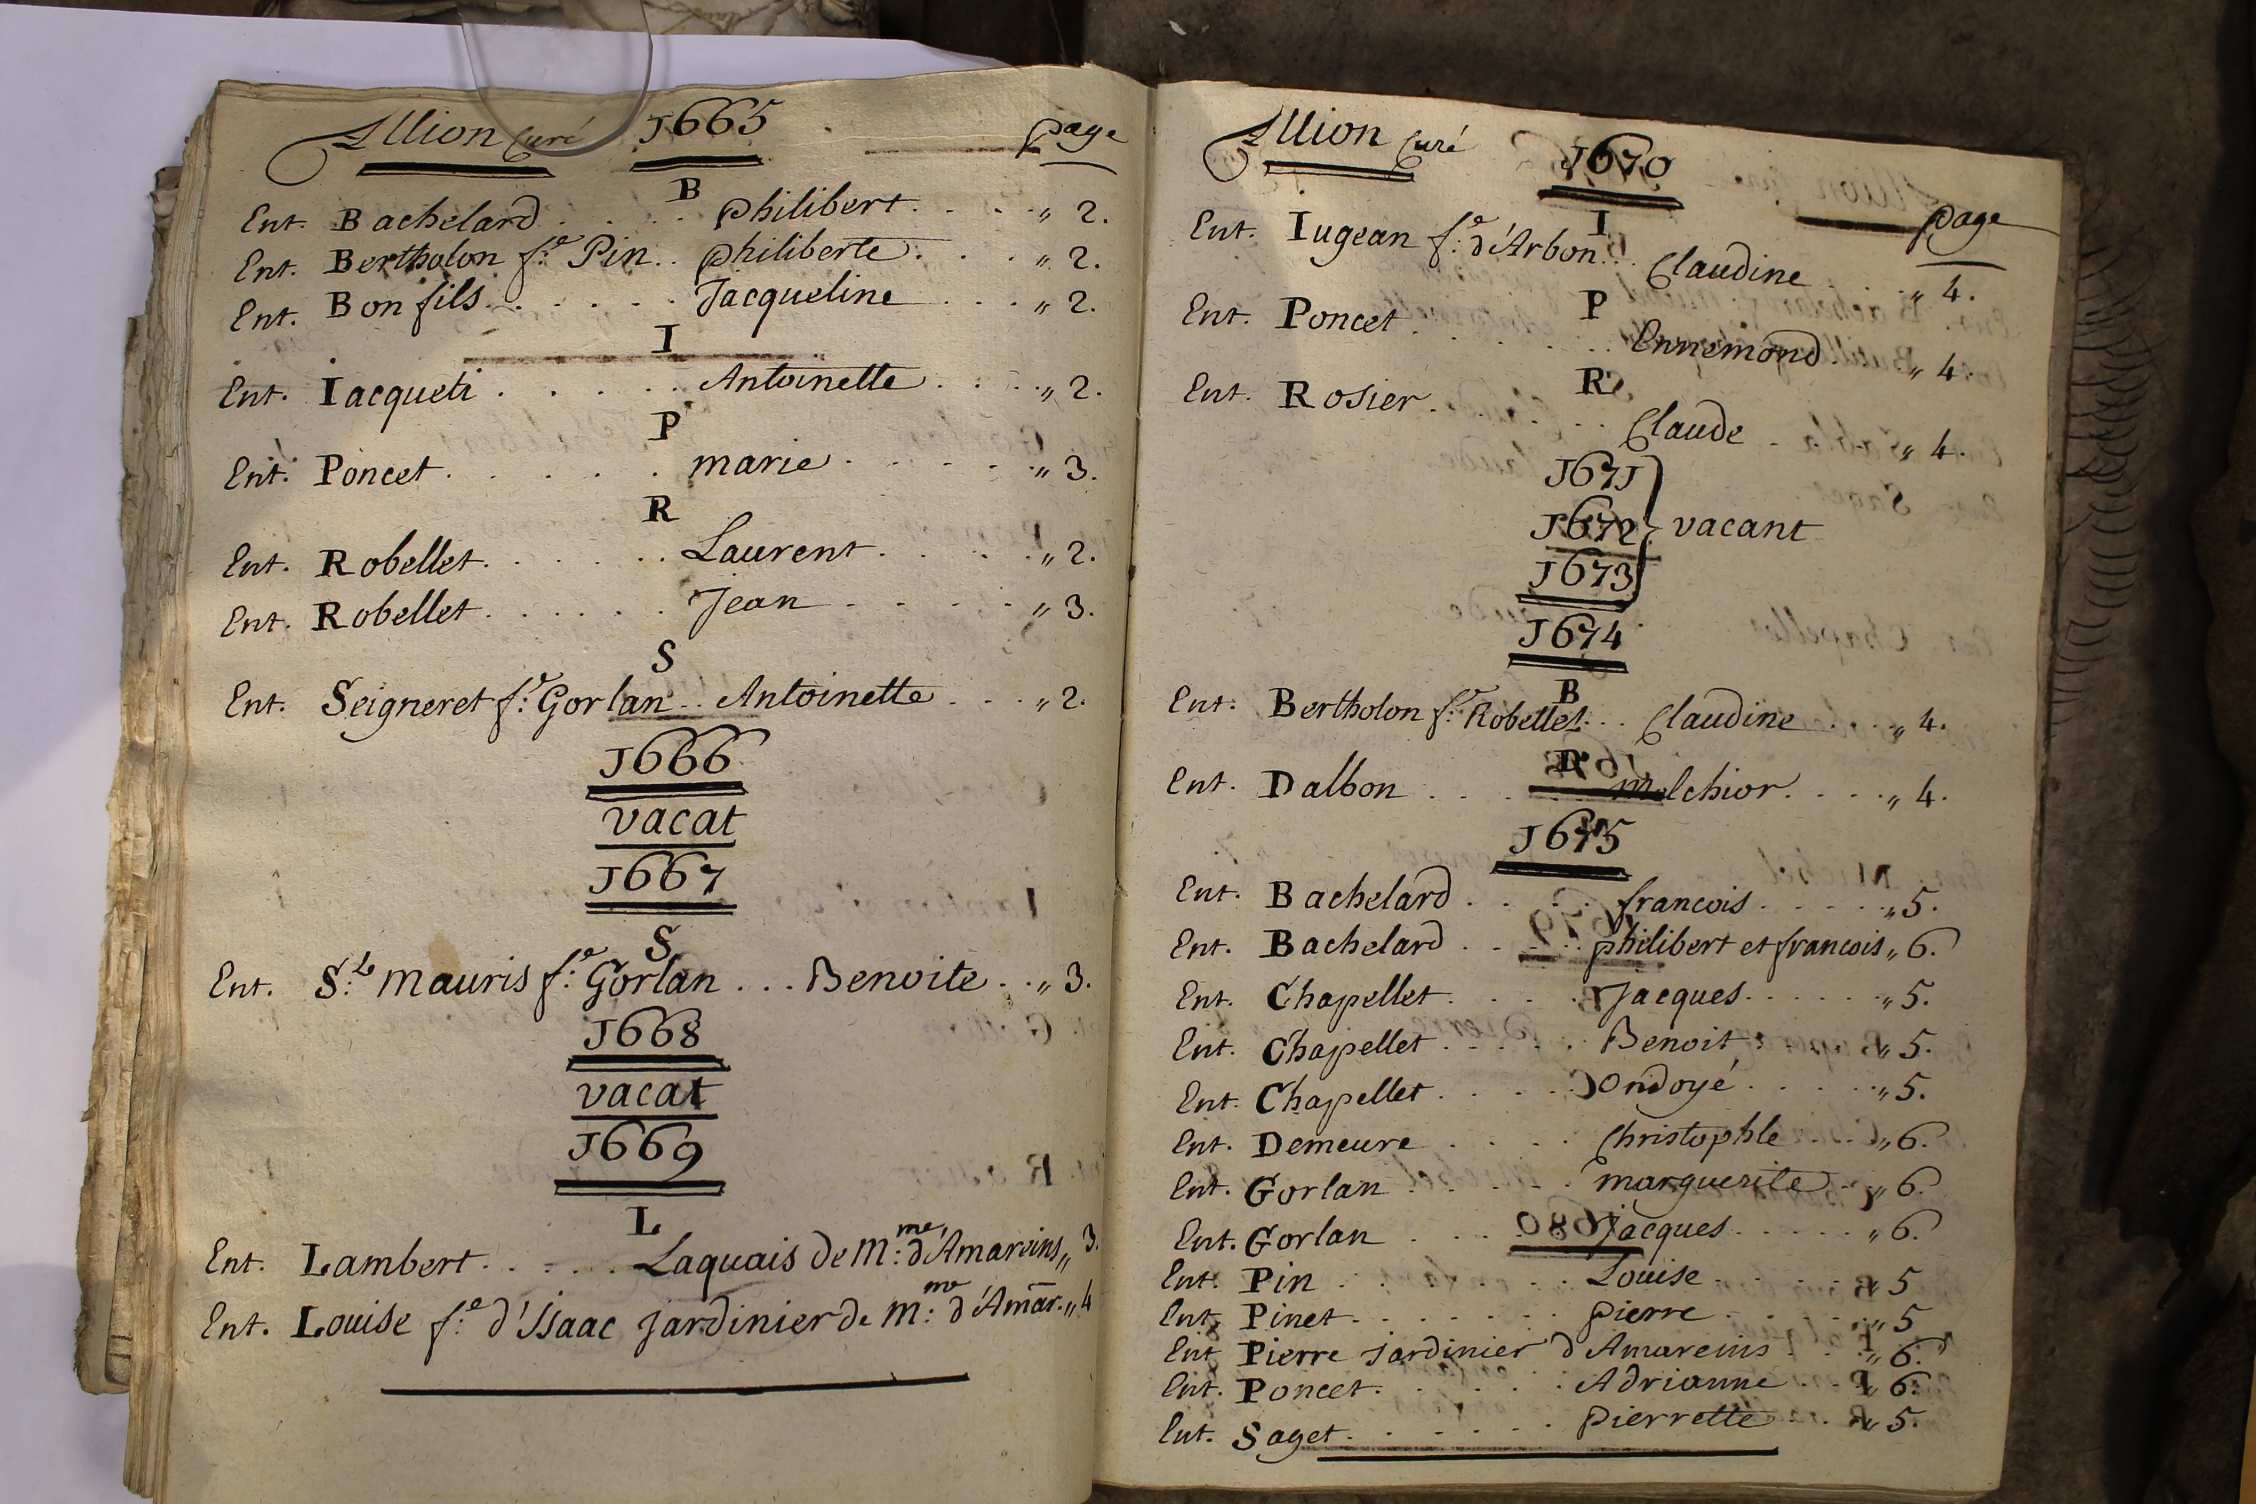 Allion Curé 1665 page
B
Ent. Bachelard . . . . philibert . . . . „ 2.
Ent. Bertholon f.e Pin . . philiberte . . . . „ 2.
Ent. Bon fils . . . . . Jacqueline . . . . „ 2.
I
Ent. Iacqueti . . . . . Antoinette . . . . „ 2.
P
Ent. Poncet . . . . . marie . . . . . . „ 3.
R
Ent. Robellet . . . . . Laurent . . . . . „ 2.
Ent. Robellet . . . . . Jean . . . . . „ 3.
S
Ent. Seigneret f.e Gorlan . . Antoinette . . . „ 2.
1666
vacat
1667
S
Ent. S.t mauris f.e Gorlan . . . Benoite . . „ 3.
1668
vacat
1669
L
Ent. Lambert . . . . . Laquais de M.me d'Amareins „ 3.
Ent. Louise f.e d'Isaac jardinier de M.me d'Amar. „ 4
Allion Curé 1670
page
I
Ent. Iugean f.e d'Arbon . . Claudine . . . . „ 4.
P
Ent. Poncet . . . . . . Ennemond . . „ 4.
R
Ent. Rosier . . . . . Claude . . . „ 4.
1671
1672 } vacant
1673
1674
B
Ent. Bertholon f.e Robellet . . Claudine . . . „ 4.
D
Ent. Dalbon . . . . . . melchior . . . . „ 4.
1675
Ent. Bachelard . . . . . francois . . . . . „ 5.
Ent. Bachelard . . . . . philibert et francois „ 6.
Ent. Chapellet . . . . . Jacques . . . . . „ 5.
Ent. Chapellet . . . . . Benoit . . . . „ 5.
Ent. Chapellet . . . . . ondoyé . . . . . „ 5.
Ent. Demeure . . . . . Christophle . . . „ 6.
Ent. Gorlan . . . . . . marguerite . . „ 6.
Ent. Gorlan . . . . . Jacques . . . . . „ 6.
Ent. Pin . . . . . . . Louise . . . . . „ 5
Ent. Pinet . . . . . . . pierre . . . . . „ 5
Ent Pierre jardinier d'Amareins . . . . „ 6.
Ent. Poncet . . . . . . Adrianne . . . „ 6.
Ent. Saget . . . . . . pierrette . . . . „ 5.